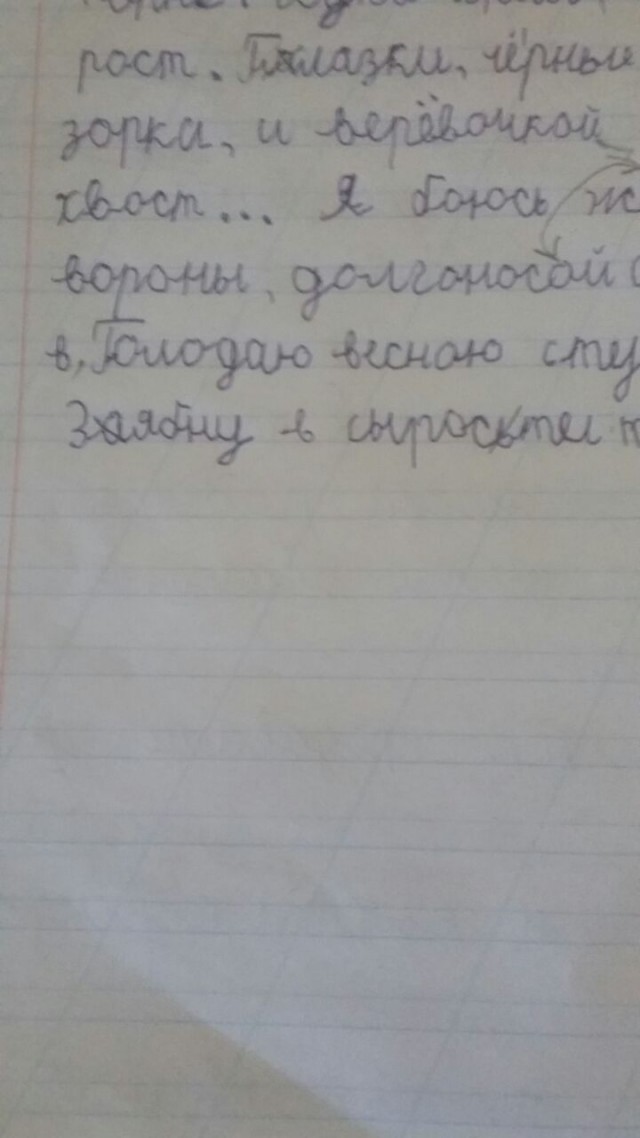 рост. Глазки, чёрные
зорка, и верёвочкой
хвост... Я боюсь ж
вороны, долгоносой
в, Голодаю весною сту
Зазябну в сырости